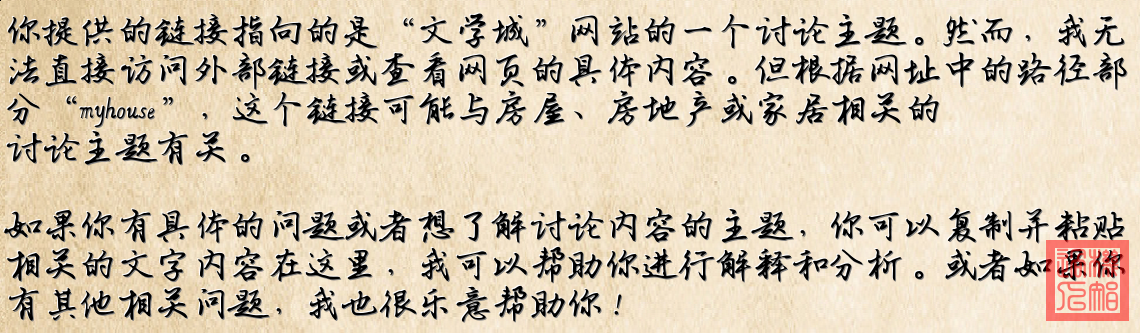 你提供的链接指向的是“文学城”网站的一个讨论主题。然而，我无
法直接访问外部链接或查看网页的具体内容。但根据网址中的路径部
分“myhouse”，这个链接可能与房屋、房地产或家居相关的
讨论主题有关。
如果你有具体的问题或者想了解讨论内容的主题，你可以复制并粘贴
相关的文字内容在这里，我可以帮助你进行解释和分析。或者如果你
有其他相关问题，我也很乐意帮助你！